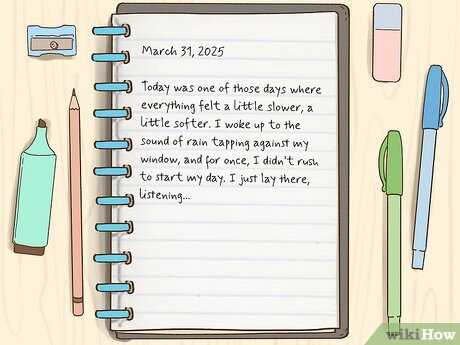 March 31, 2025
Today was one of those days where
everything felt a little slower, a
little softer. I woke up to the
sound of rain tapping against my
window, and for once, I didn't rush
to start my day. I just lay there,
listening...
wikiHow